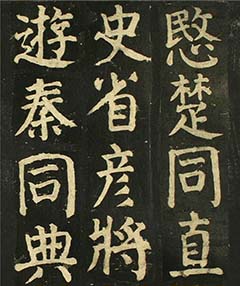 愍楚同直
史省彦將
遊秦同典